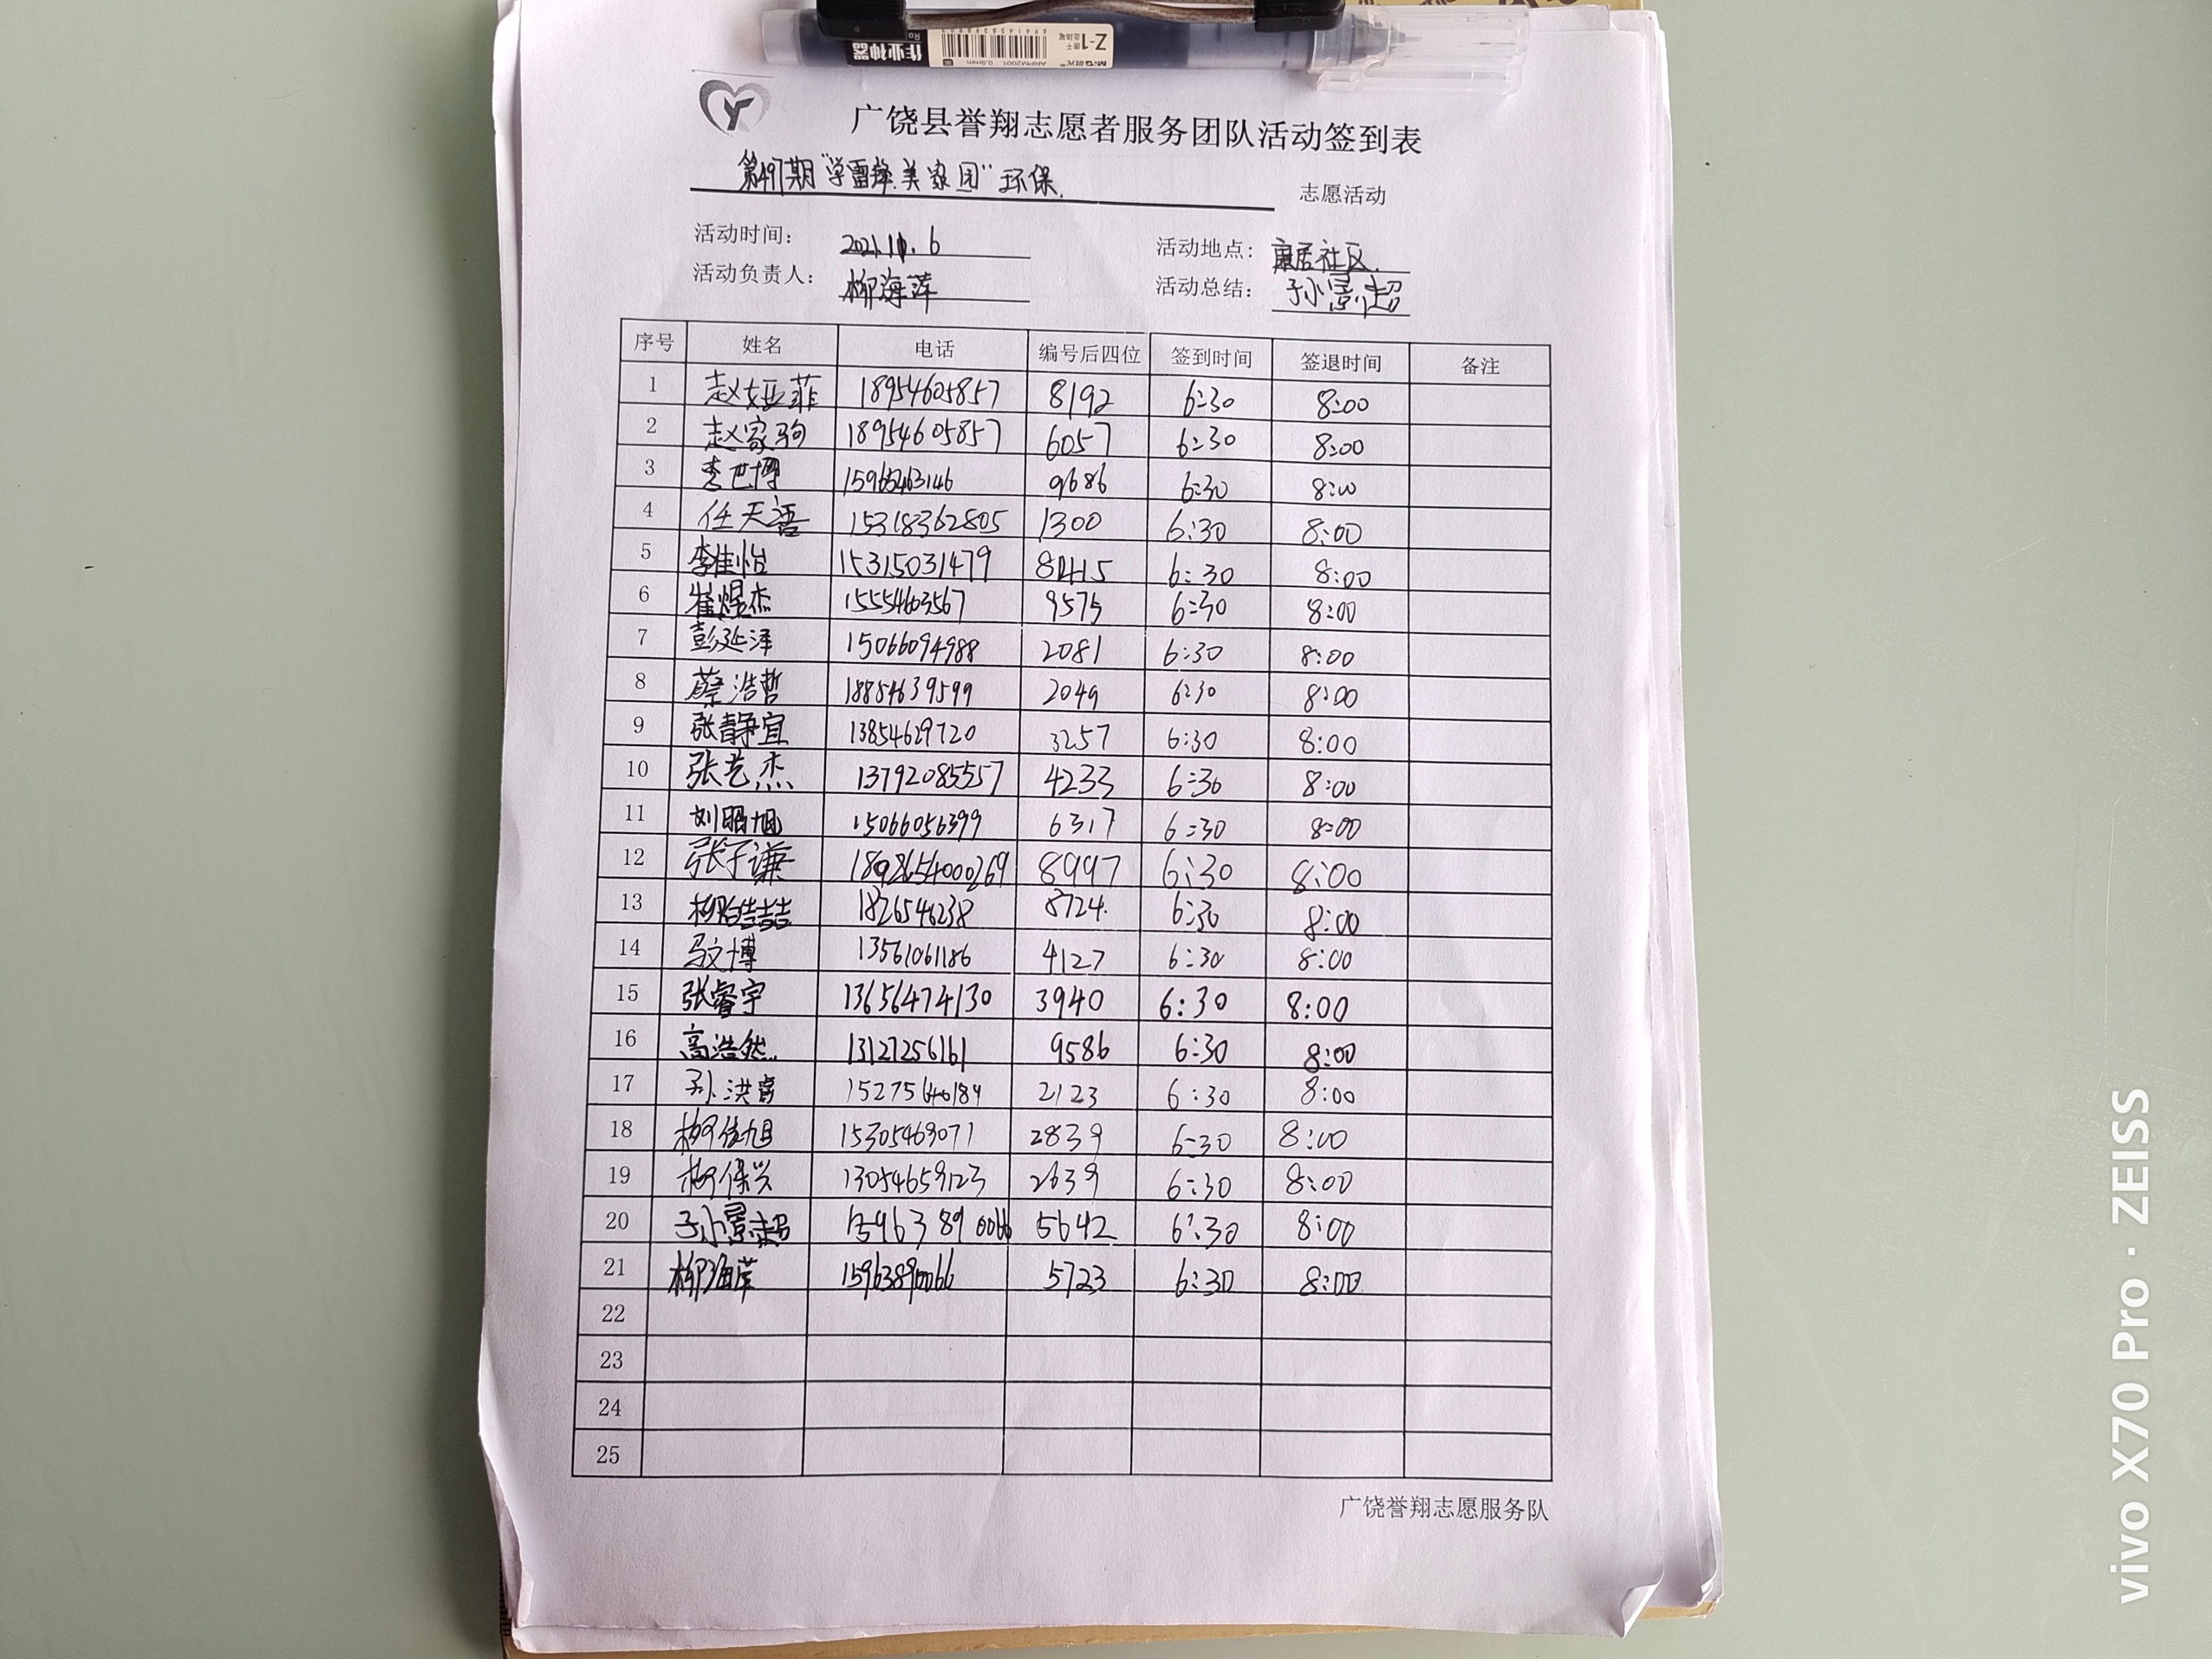 作业神器
ARPM2001 0.5mm
M&G 晨光
Z-1
广饶县誉翔志愿者服务团队活动签到表
第497期“学雷锋.美家园”环保. 志愿活动
活动时间： 2021.10.6 活动地点： 康居社区.
活动负责人： 柳海萍 活动总结： 孙景超
序号 姓名 电话 编号后四位 签到时间 签退时间 备注
1 赵娅菲 18954605857 8192 6:30 8:00
2 赵家驹 18954605857 6057 6:30 8:00
3 李世博 15965463146 9686 6:30 8:00
4 任天语 15318362805 1300 6:30 8:00
5 李佳怡 15315031479 6:30 8:00
6 崔煜杰 15554603567 9575 6:30 8:00
7 彭延泽 15066094988 2081 6:30 8:00
8 蔡浩哲 18854639599 2049 6:30 8:00
9 张静宜 13854629720 3257 6:30 8:00
10 张艺杰 13792085557 4233 6:30 8:00
11 刘昭旭 15066056399 6317 6:30 8:00
12 张子谦 8997 6:30 8:00
13 1826546238 8724. 6:30 8:00
14 马文博 13561061186 4127 6:30 8:00
15 张睿宇 13656474130 3940 6:30 8:00
16 高浩然 13127256161 9586 6:30 8:00
17 孙洪睿 2123 6:30 8:00
18 柳俊旭 15305469071 2839 6:30 8:00
19 柳保兴 13054659123 2639 6:30 8:00
20 孙景超 15963890066 5642 6:30 8:00
21 柳海萍 15963890066 5723 6:30 8:00
22
23
24
25
广饶誉翔志愿服务队
vivo X70 Pro · ZEISS